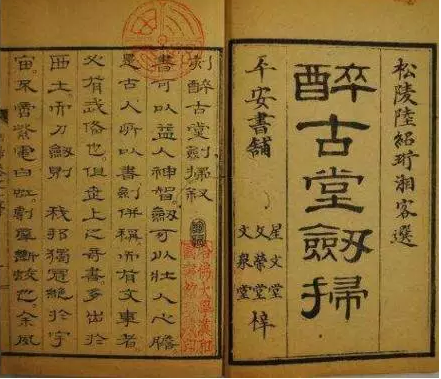 松陵陸紹珩湘客選
醉古堂劒掃
平安書舖
星文堂
文榮堂
文泉堂
梓
刻醉古堂劍掃叙
書可以益人神智劔可以壯人心膽
是古人所以書劍併稱而有文事者
必有武俻也但世上之奇書多出於
西土而刀劔則 我邦獨冠絶於宇
宙。雷紫電白虹。犀斷蛟也。余風